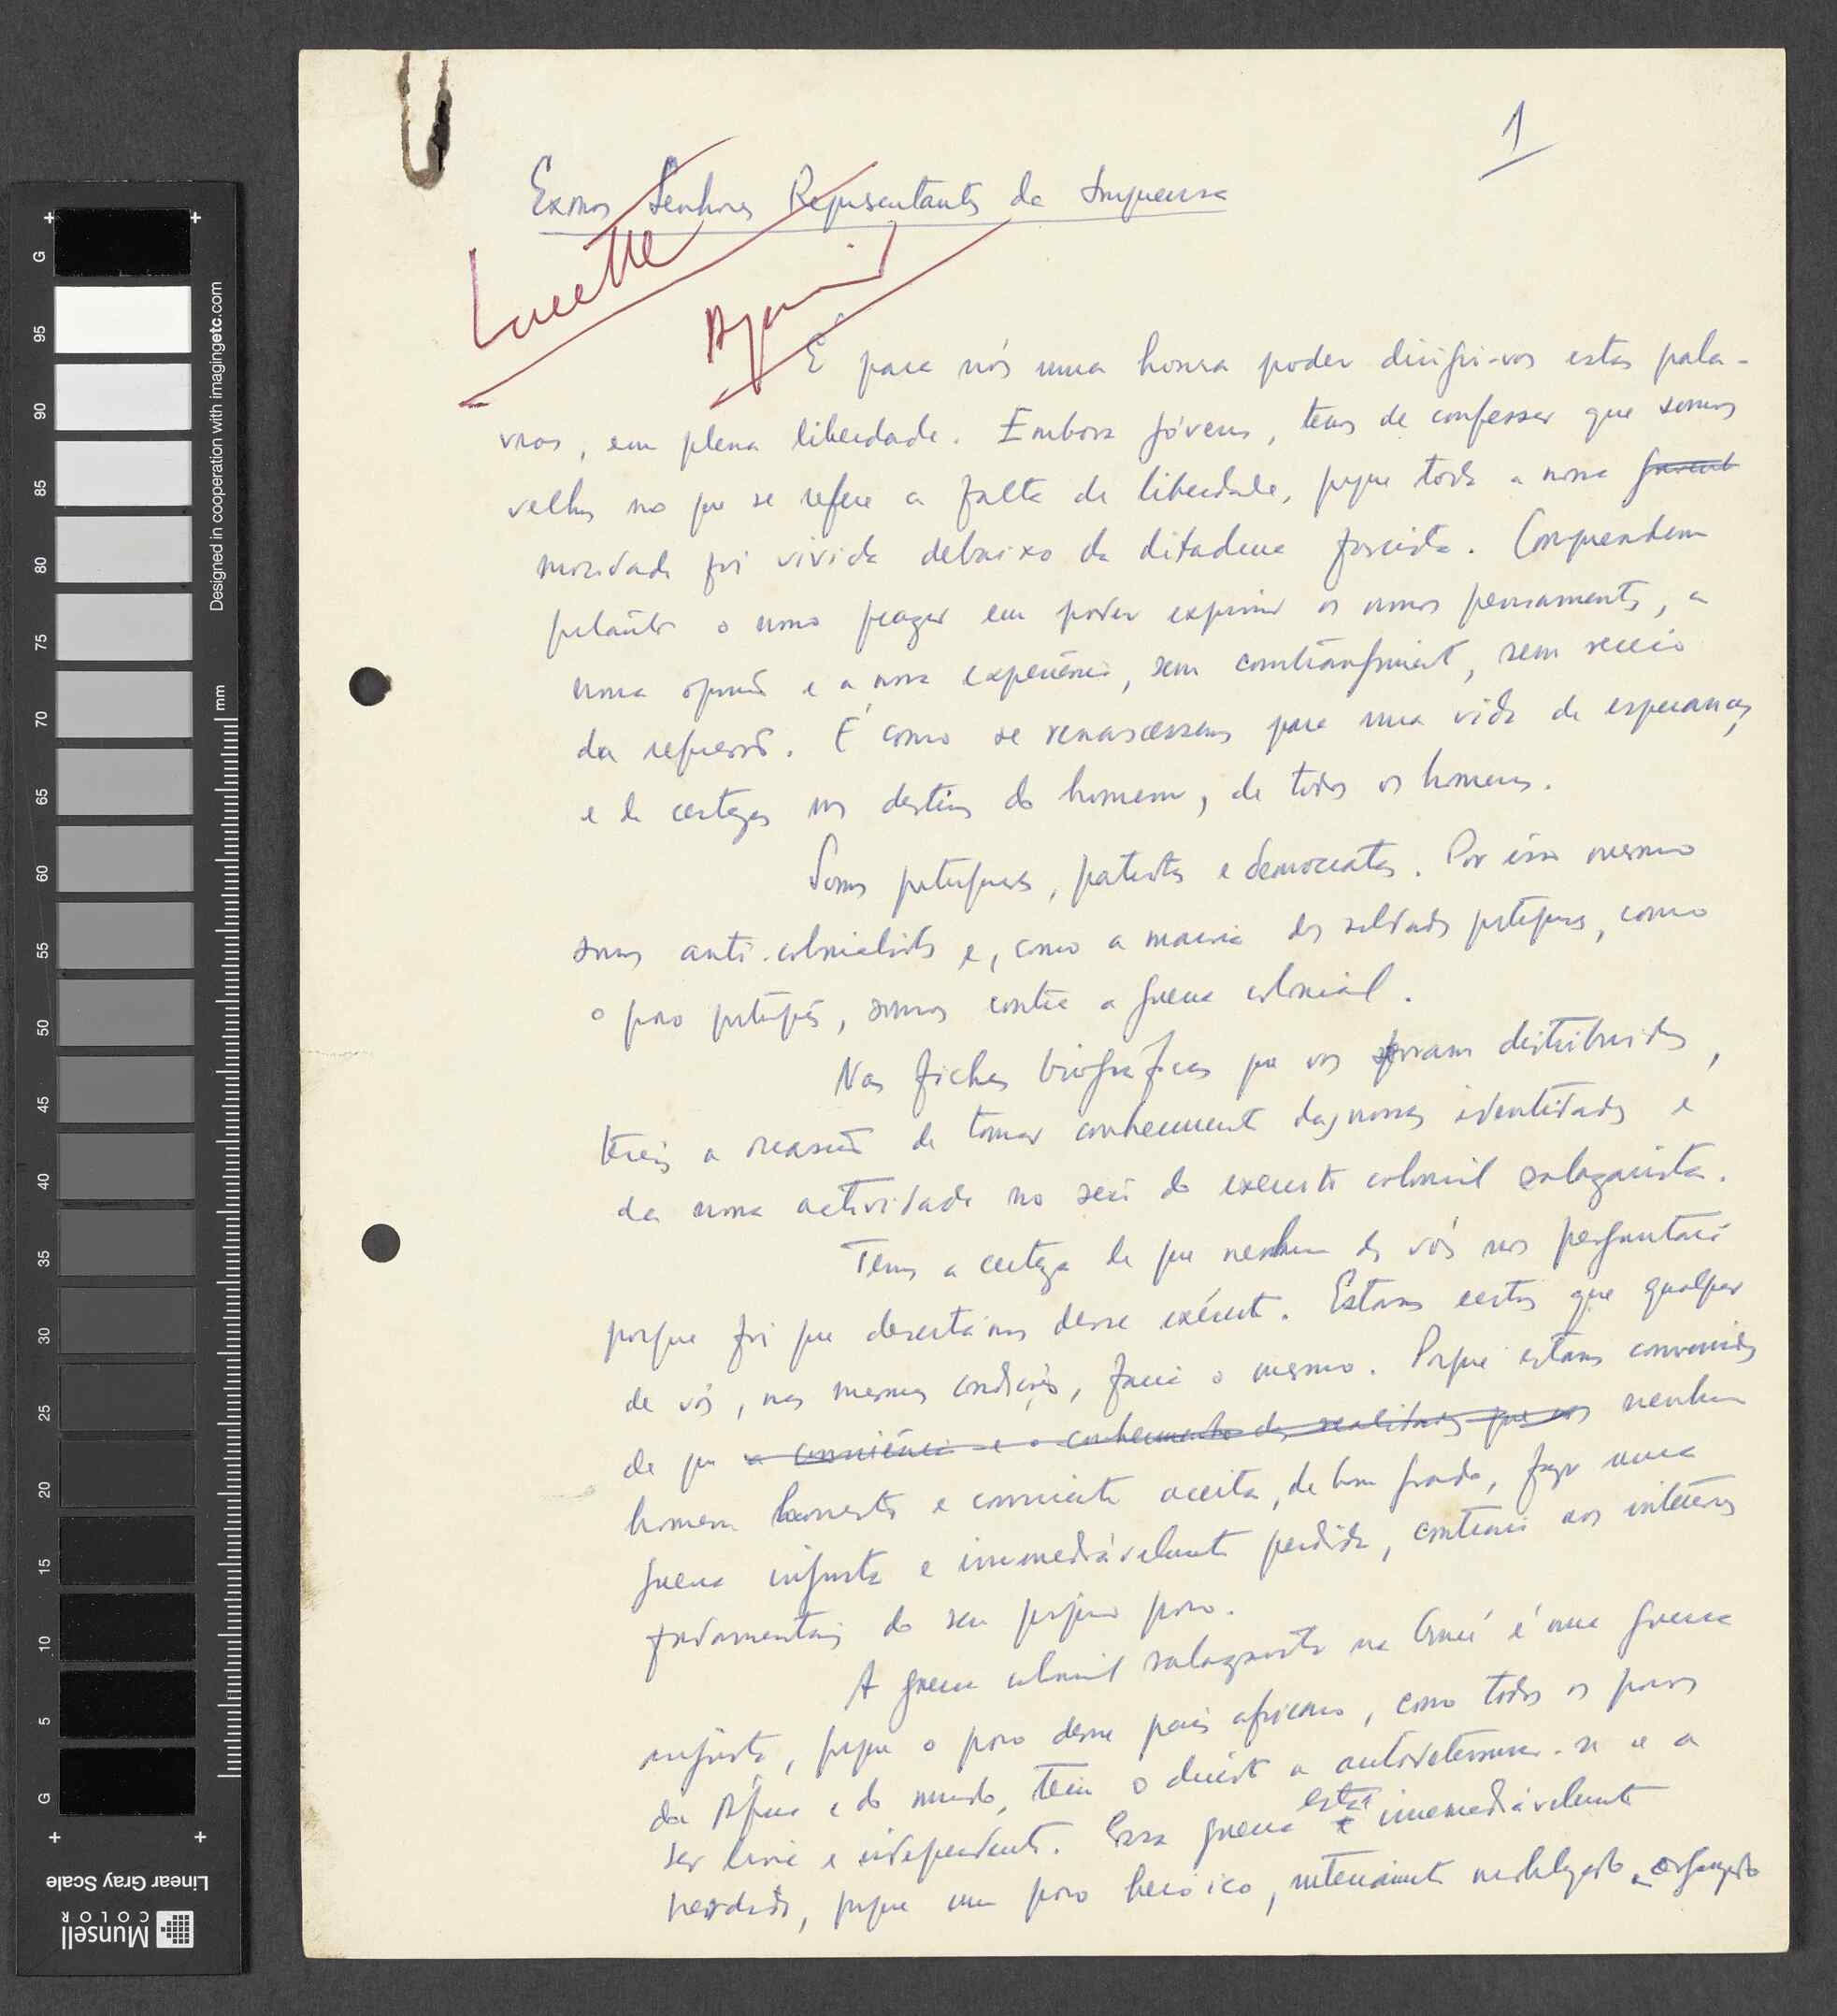 1
Exmos Senhores Representantes da Imprensa
Lucette
É para nós uma honra poder dirigir-vos estas pala-
vras, em plena liberdade. Embora jóvens, temos de confessar que somos
velhos no que se refere a falta de liberdade, porque toda a nossa
mocidade foi vivida debaixo da ditadura fascista. Compreendem
portanto o nosso prazer em poder exprimir os nossos pensamentos, a
nossa opinião e a nossa experiência, sem constrangimento, sem receio
da repressão. É como se renascessemos para uma vida de esperanças
e de certezas nos destinos do homem, de todos os homens.
Somos portugueses, patriotas e democratas. Por isso mesmo
somos anti-colonialistas e, como a maioria dos soldados portugueses, como
o povo português, somos contra a guerra colonial.
Nas fichas biográficas que vos foram distribuidas,
tereis a ocasião de tomar conhecimento das nossas identidades e
da nossa actividade no seio do exercito colonial salazarista.
Temos a certeza de que nenhum de vós nos perguntará
porque foi que desertámos desse exército. Estamos certos que qualquer
de vós, nas mesmas condições, faria o mesmo. Porque estamos convencidos
de que a consciência e o conhecimento das realidades que nos nenhum
homem honesto e consciente aceita, de bom grado, fazer uma
guerra injusta e irremediávelmente perdida, contraria aos interesses
fundamentais do seu próprio povo.
A guerra colonial salazarista na Guiné é uma guerra
injusta, porque o povo desse país africano, como todos os povos
da África e do mundo, tem o direito a autodeterminar-se e a
ser livre e independente. Essa guerra está irremediávelmente
perdida, porque um povo heróico, inteiramente mobilizado e organizado
Designed in cooperation with imagingetc.com
mm
G
95
90
85
80
75
70
65
60
55
50
45
40
35
30
25
20
15
10
5
G
Linear Gray Scale
Munsell
COLOR